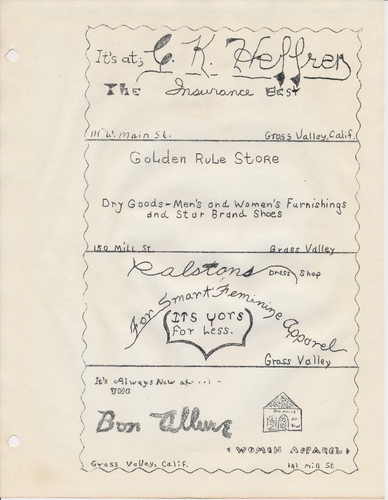 It's at; G. K. Heffren
The Insurance Best
111 W. Main St. Grass Valley, Calif.
Golden Rule Store
Dry Goods-Men's and Women's Furnishings
and Star Brand Shoes
150 Mill St. Grass Valley
Ralstons Dress Shop
For Smart Feminine Apparel
ITS YORS
For Less.
Grass Valley
It's Always New at....
THE
Bon Allure
WOMEN APPAREL
Grass Valley, Calif. 141 Mill St